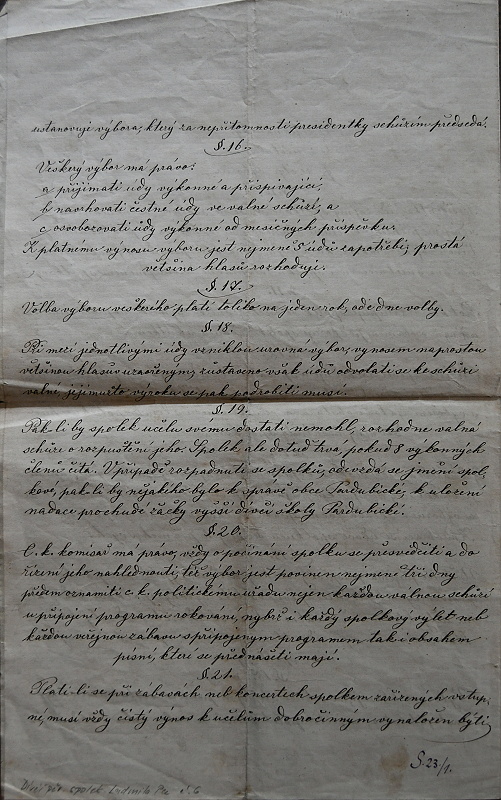 ustanovuje výbora, který za nepřítomnosti presidentky schůzím předsedá.
§. 16.
Veškerý výbor má právo:
a přijímati údy výkonné a přispívající;
b navrhovati čestné údy ve valné schůzi; a
c osvobozovati údy výkonné od mesičných příspěvku.
K platnému výnosu výboru jest nejméně 5 údů zapotřebí; prostá
většina hlasů rozhoduje.
§. 17.
Volba výboru veškerého platí toliko na jeden rok, ode dne volby.
§. 18.
Při mezi jednotlivými údy vzniklou urovná výbor, výnosem naprostou
většinou hlasův uzavřeným; zůstaveno však údů odvolati se ke schůzi
valné, jejímužto výroku se pak podrobiti musí.
§. 19.
Pak-li by spolek učelu svemu dostati nemohl, rozhodne valná
schůze o rozpuštění jeho. Spolek ale dotud trvá, pokud 8 výkonných
členů čítá. V případě rozpadnutí se spolků, odevzdá se jmění spol-
kove, pak-li by nějakého bylo k správě obce Pardubické, k uložení
nadace pro chudé žačky vyšší dívčí školy Pardubické.
§. 20.
C. k. komisař má právo, vždy o počínání spolku se přesvědčiti a do
řízení jeho nahlednouti, též výbor jest povinen nejméně tři dny
předem oznamiti c. k. politickému úřadu nejen každou valnou schůzi
u připojení programu rokování, nybrž i každý spolkový výlet neb
každou veřejnou zabavu s připojenym programem tak i obsahem
písní, které se přednášeti mají.
§. 21.
Platí-li se při zábavách neb koncertech spolkem zařízených vstup-
né, musí vždy čistý výnos k účelům dobročinným vynaložen býti
S. 23/1.
spolek Ludmila